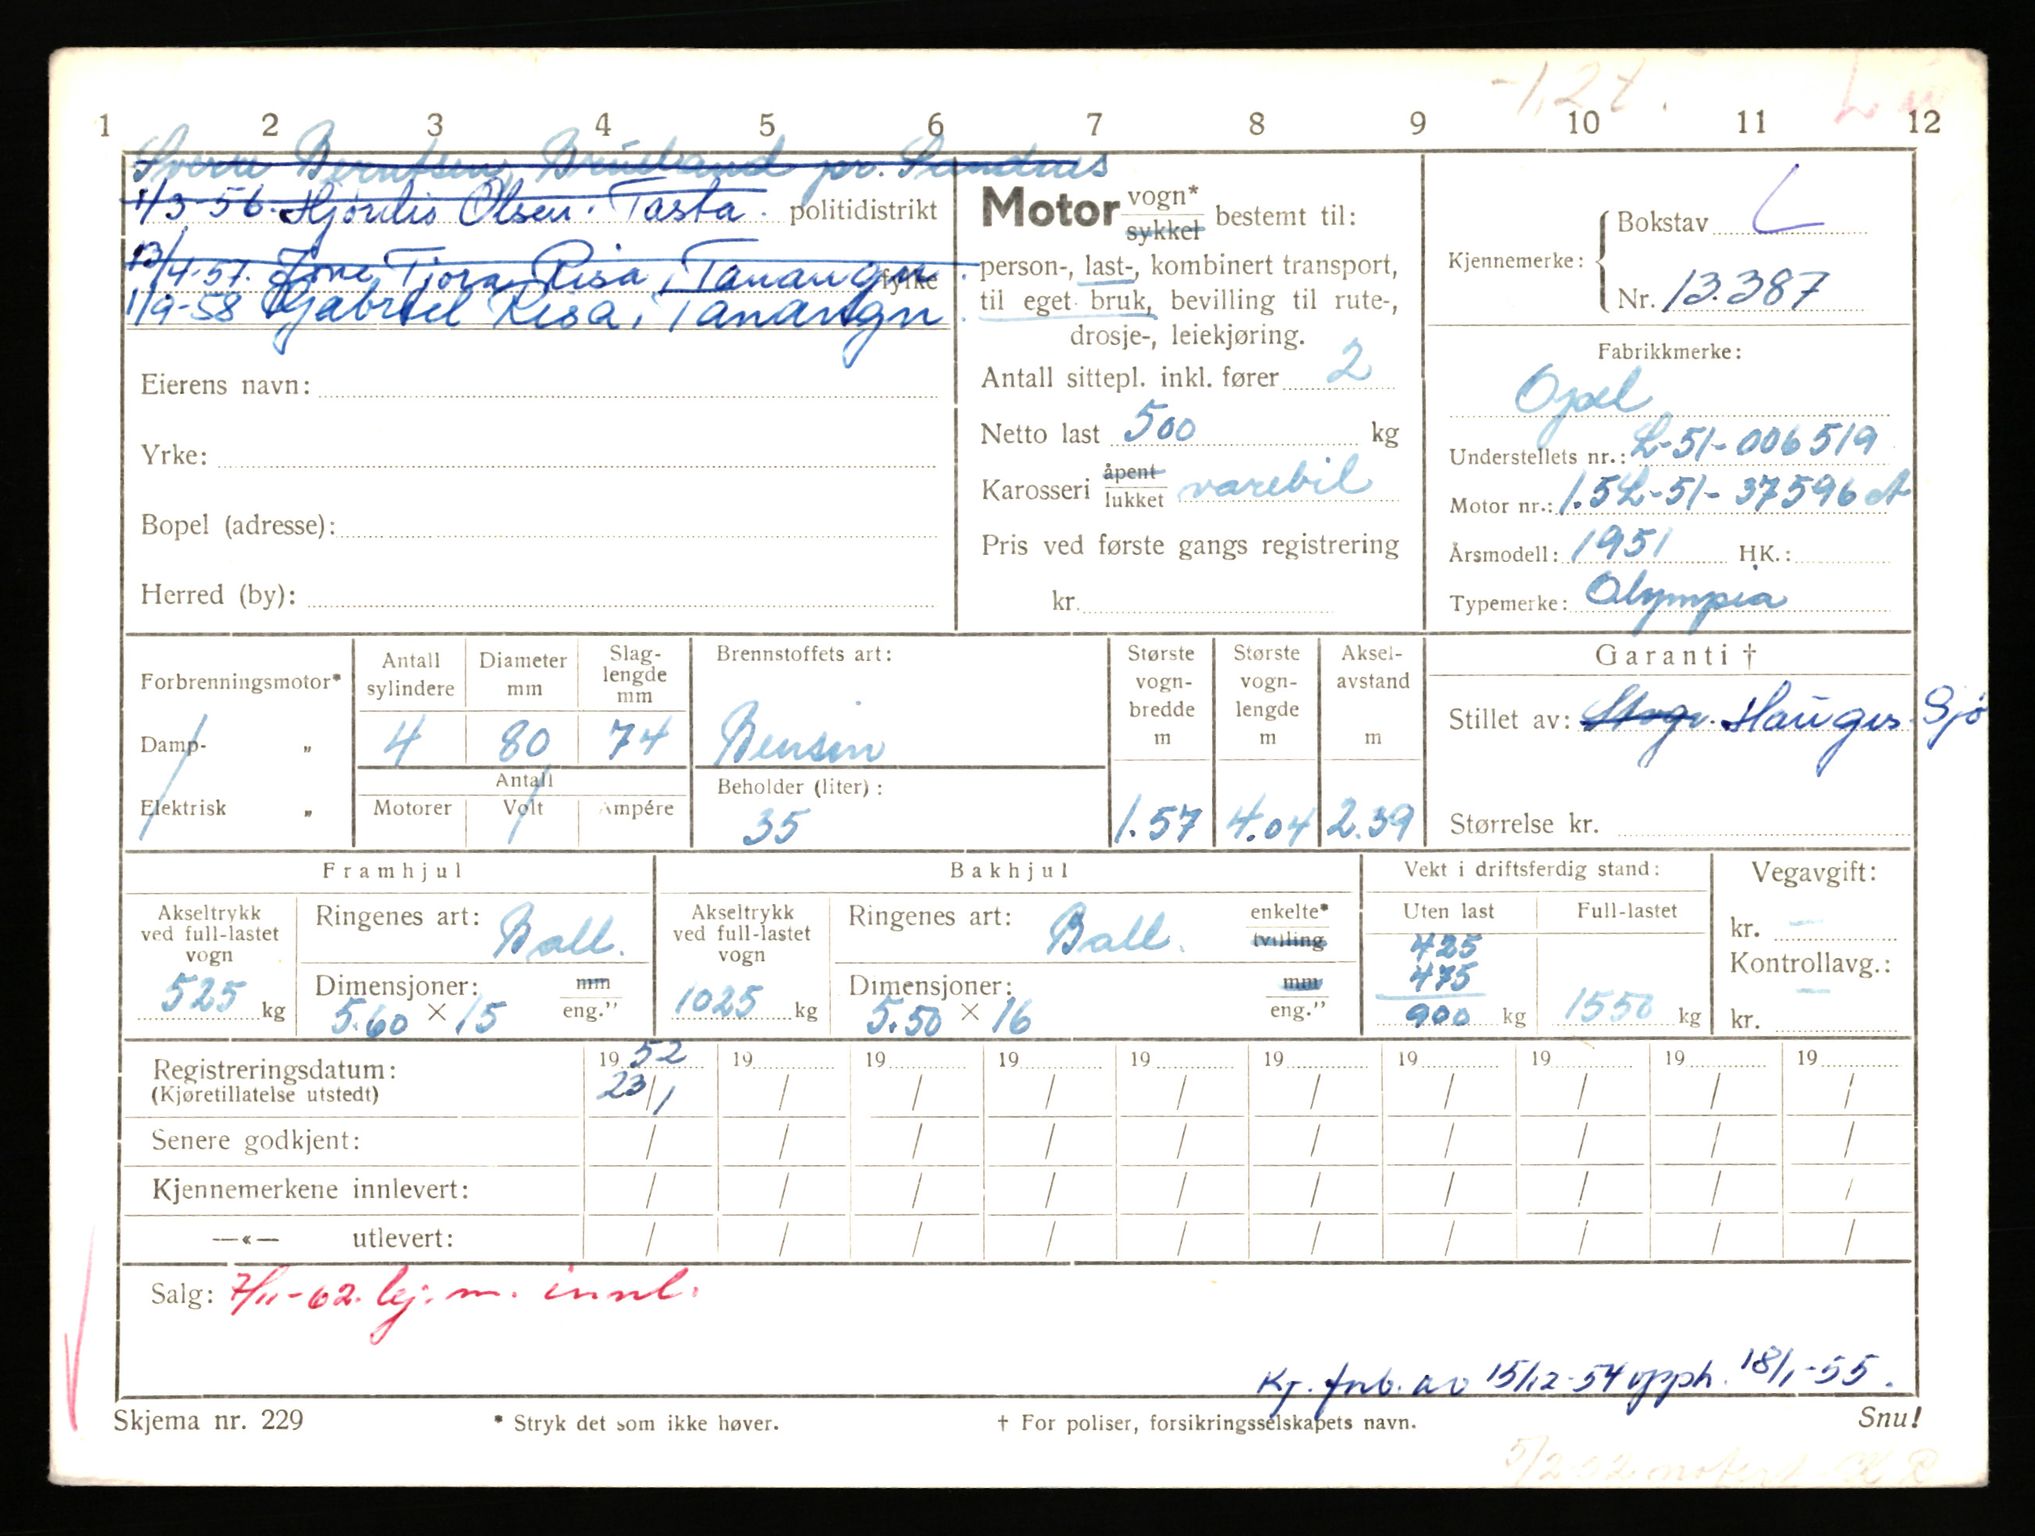 -1,2t.
1 2 3 4 5 6 7 8 9 10 11 12
Sverre Berntsen, Brueland pr. Sandnes
1/3-56. Hjördis Olsen. Tasta. politidistrikt
13/4-57. Tone Tjora Risa, Tananger. fylke
1/9-58 Gabriel Risa, Tananger
Eierens navn:
Yrke:
Bopel (adresse):
Herred (by):
Motor vogn* sykkel bestemt til:
person-, last-, kombinert transport,
til eget bruk, bevilling til rute-,
drosje-, leiekjøring.
Antall sittepl. inkl. fører 2
Netto last 500 kg
Karosseri åpent lukket varebil
Pris ved første gangs registrering
kr.
Kjennemerke: Bokstav L
Nr. 13.387
Fabrikkmerke:
Opel
Understellets nr.: L-51-006519
Motor nr.: 1.5L-51-37596 A
Årsmodell: 1951 HK.:
Typemerke: Olympia
Forbrenningsmotor*
Damp- „
Elektrisk „
Antall sylindere 4
Diameter mm 80
Slag-lengde mm 74
Antall
Motorer Volt Ampére
Brennstoffets art:
Bensin
Beholder (liter):
35
Største vogn-bredde m 1.57
Største vogn-lengde m 4.04
Aksel-avstand m 2.39
Garanti †
Stillet av: Haugis. Sjö
Størrelse kr.
Framhjul
Akseltrykk ved full-lastet vogn 525 kg
Ringenes art: Ball.
Dimensjoner: mm eng.”
5.60 × 15
Bakhjul
Akseltrykk ved full-lastet vogn 1025 kg
Ringenes art: Ball. enkelte* tvilling
Dimensjoner: mm eng.”
5.50 × 16
Vekt i driftsferdig stand:
Uten last Full-lastet
425
475
900 kg 1550 kg
Vegavgift:
kr. —
Kontrollavg.:
kr. —
Registreringsdatum: 1952 19 19 19 19 19 19 19 19 19
(Kjøretillatelse utstedt) 23/1 / / / / / / / / /
Senere godkjent: / / / / / / / / / /
Kjennemerkene innlevert: / / / / / / / / / /
—«— utlevert: / / / / / / / / / /
Salg: 7/11-62. kj. m. innl.
Kj. forb. av 15/12-54 opph. 18/1-55.
Skjema nr. 229 * Stryk det som ikke høver. † For poliser, forsikringsselskapets navn. Snu!